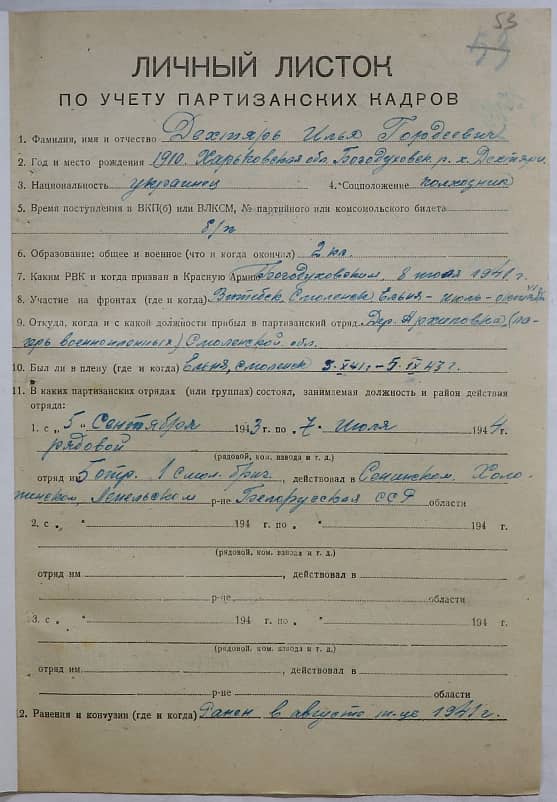 53
ЛИЧНЫЙ ЛИСТОК
ПО УЧЕТУ ПАРТИЗАНСКИХ КАДРОВ
1. Фамилия, имя и отчество Дехтярь Илья Гордеевич
2. Год и место рождения 1910. Харьковская обл. Богодуховск. р. х. Дехтяри.
3. Национальность украинец 4. Соцположение колхозник
5. Время поступления в ВКП(б) или ВЛКСМ, № партийного или комсомольского билета
б/п
6. Образование: общее и военное (что и когда окончил) 2 кл.
7. Каким РВК и когда призван в Красную Армию Богодуховским, 8 июля 1941 г.
8. Участие на фронтах (где и когда) Витебск, Смоленск Ельня - июль -
9. Откуда, когда и с какой должности прибыл в партизанский отряд Дер. Архиповка (ла-
герь военнопленных) Смоленской обл.
10. Был ли в плену (где и когда) Ельня, Смоленск 3.XI 41 г - 5.IX 43 г.
11. В каких партизанских отрядах (или группах) состоял, занимаемая должность и район действия
отряда:
1. с „5 “ Сентября 1943 г. по „7. “ Июля 1944 г.
рядовой
(рядовой, ком. взвода и т. д.)
отряд им 5 отр. 1 Смол. бриг., действовал в Сенинском, Холо-
пинском, Лепельском р-не Белорусская ССР области
2. с „ “ 194 г. по „ “ 194 г.
(рядовой, ком. взвода и т. д.)
отряд им , действовал в
р-не области
3. с „ “ 194 г. по „ “ 194 г.
(рядовой, ком. взвода и т. д.)
отряд им , действовал в
р-не области
12. Ранения и контузии (где и когда) Ранен в августе м-це 1941 г.